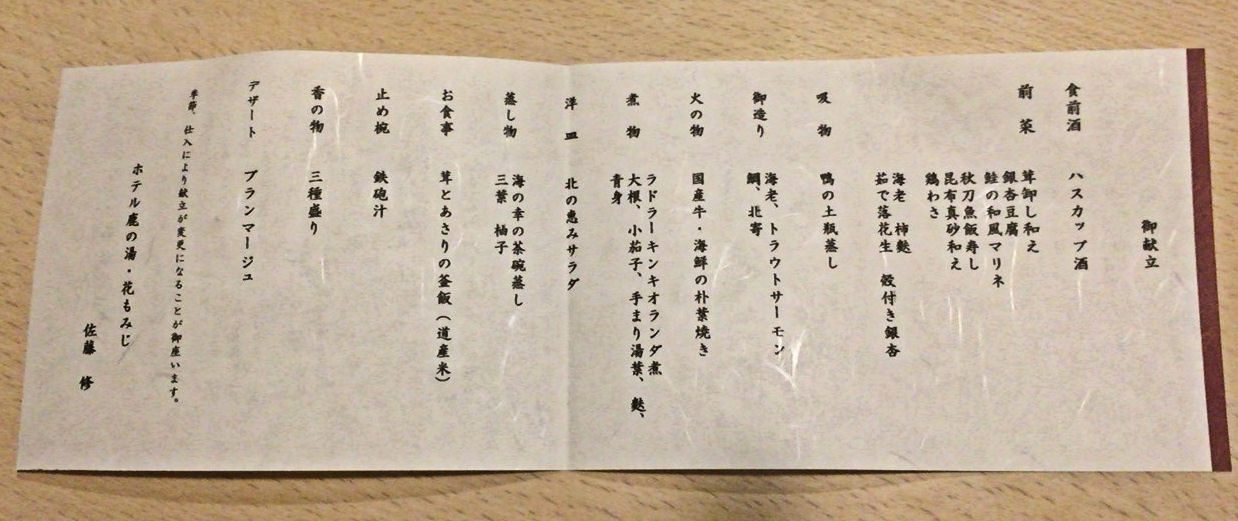 御献立
食前酒　ハスカップ酒
前　菜　茸卸し和え
銀杏豆腐
鮭の和風マリネ
秋刀魚飯寿し
昆布真砂和え
鶏わさ
海老　柿麩　殻付き銀杏
茹で落花生
吸　物　鴨の土瓶蒸し
御造り　海老、トラウトサーモン
鯛、北寄
火の物　国産牛・海鮮の朴葉焼き
煮　物　ラドラーキンキオランダ煮
大根、小茄子、手まり湯葉、麩、
青身
洋　皿　北の恵みサラダ
蒸し物　海の幸の茶碗蒸し
三葉　柚子
お食事　茸とあさりの釜飯（道産米）
止め椀　鉄砲汁
香の物　三種盛り
デザート　ブランマージュ
季節、仕入により献立が変更になることが御座います。
ホテル鹿の湯・花もみじ
佐藤　修